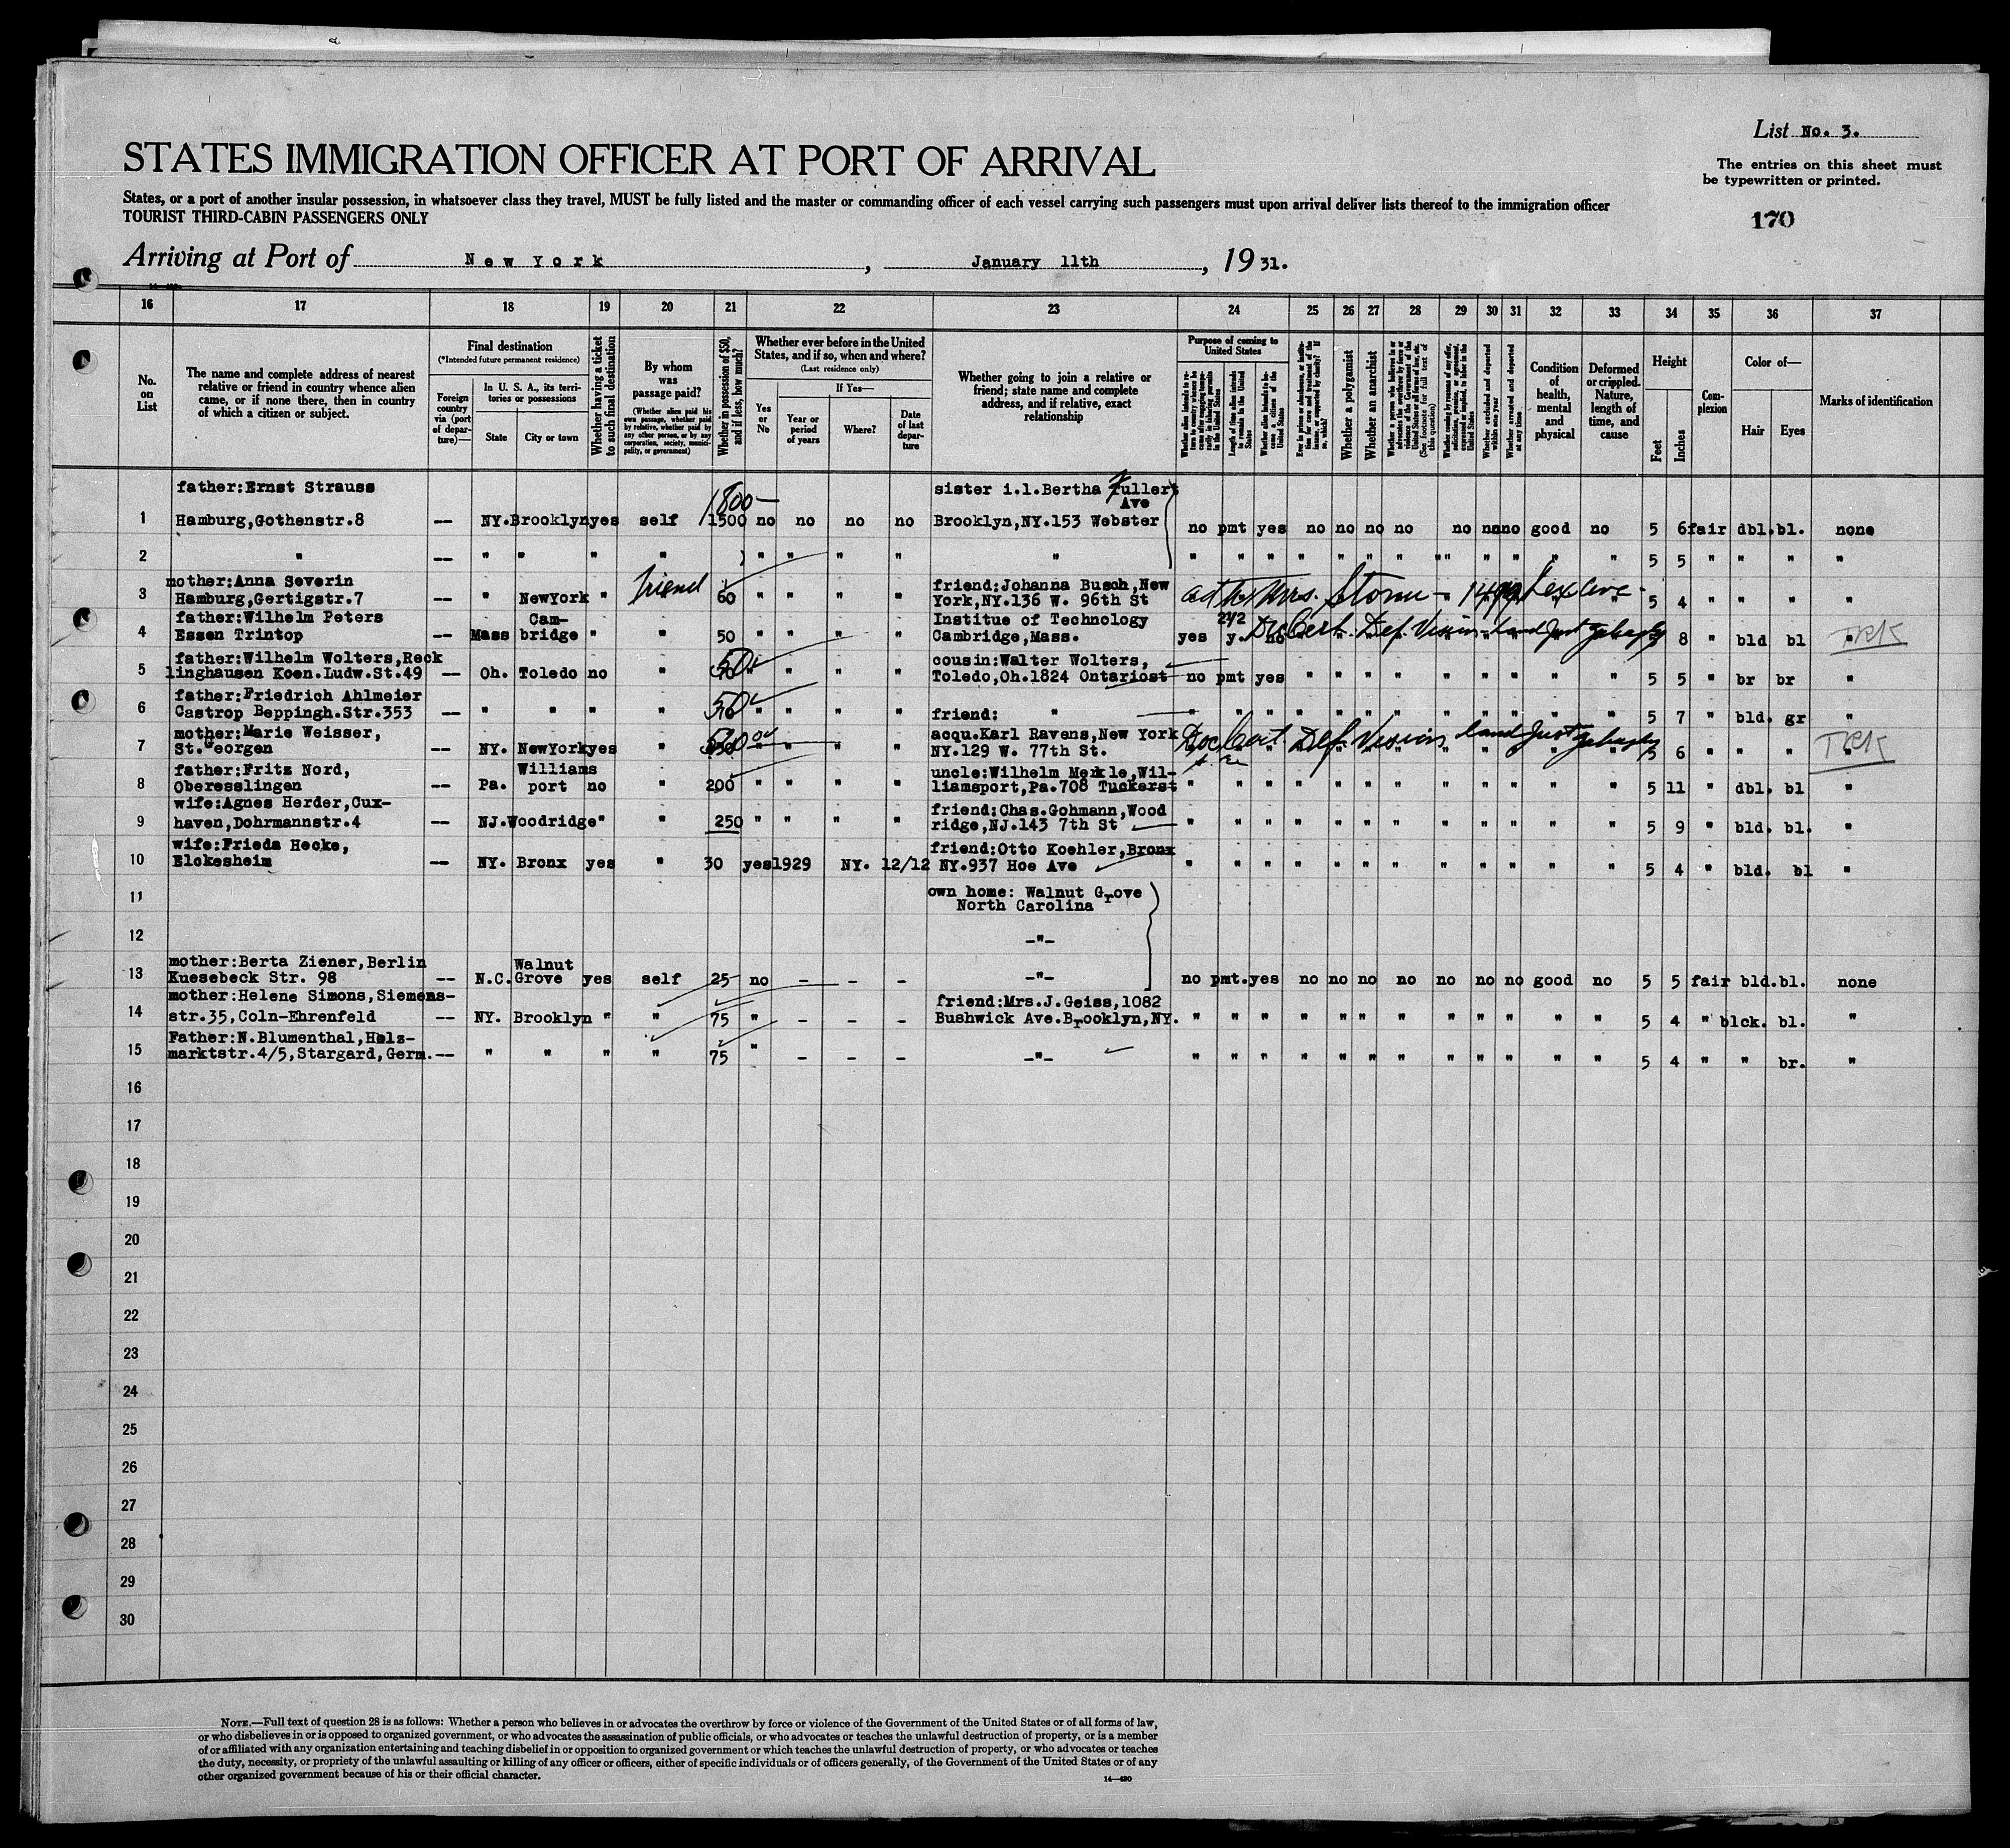 List No. 3.
STATES IMMIGRATION OFFICER AT PORT OF ARRIVAL
The entries on this sheet must
be typewritten or printed.
States, or a port of another insular possession, in whatsoever class they travel, MUST be fully listed and the master or commanding officer of each vessel carrying such passengers must upon arrival deliver lists thereof to the immigration officer
TOURIST THIRD-CABIN PASSENGERS ONLY
170
Arriving at Port of New York, January 11th, 19 31.
16 17 18 19 20 21 22 23 24 25 26 27 28 29 30 31 32 33 34 35 36 37
No. on List
The name and complete address of nearest
relative or friend in country whence alien
came, or if none there, then in country
of which a citizen or subject.
Final destination
(*Intended future permanent residence)
Foreign country via (port of departure)—
In U. S. A., its territories or possessions
State City or town
Whether having a ticket to such final destination
By whom was passage paid?
(Whether alien paid his own passage, whether paid by relative, whether paid by any other person, or by any corporation, society, municipality, or government)
Whether in possession of $50, and if less, how much?
Whether ever before in the United States, and if so, when and where?
(Last residence only)
Yes or No
If Yes—
Year or period of years
Where?
Date of last departure
Whether going to join a relative or
friend; state name and complete
address, and if relative, exact
relationship
Purpose of coming to United States
Whether alien intends to return to country whence he came after engaging temporarily in laboring pursuits in the United States
Length of time alien intends to remain in the United States
Whether alien intends to become a citizen of the United States
Whether a polygamist
Whether an anarchist
Whether excluded and deported within one year
Whether arrested and deported at any time
Condition of health, mental and physical
Deformed or crippled. Nature, length of time, and cause
Height
Feet Inches
Complexion
Color of—
Hair Eyes
Marks of identification
father:Ernst Strauss 1800— sister i.l.Bertha Fullert
Ave
1 Hamburg,Gothenstr.8 -- NY. Brooklyn yes self 1500 no no no no Brooklyn,NY.153 Webster no pmt yes no no no no no no no good no 5 6 fair dbl. bl. none
2 " -- " " " " " " " " " " " " " " " " " " " " " " 5 5 " " " "
mother:Anna Severin friend friend:Johanna Busch,New
3 Hamburg,Gertigstr.7 " NewYork " 60 " " " " York,NY.136 W. 96th St Mrs. 5 4 " " " "
father:Wilhelm Peters Cam- Institue of Technology 2 1/2
4 Essen Trintop -- Mass bridge " " 50 " " " " Cambridge,Mass. yes y. no Doc Cert. Def. Vision 8 " bld bl "
father:Wilhelm Wolters,Reck 50 cousin:Walter Wolters,
5 linghausen Koen.Ludw.St.49 -- Oh. Toledo no " " " " " Toledo,Oh.1824 Ontariost no pmt yes " " " " " " " " " 5 5 " br br "
father:Friedrich Ahlmeier 50
6 Castrop Beppingh.Str.353 -- " " " " " " " " friend: " " " " " " " " " " " " " " 5 7 " bld. gr "
mother:Marie Weisser, acqu.Karl Ravens,New York
7 St.Georgen -- NY. NewYork yes " " " " " NY.129 W. 77th St. Doc Cert. Def Vision 5 6 " " " "
father:Fritz Nord, Williams uncle:Wilhelm Merkle,Wil-
8 Oberesslingen -- Pa. port no " 200 " " " " liamsport,Pa.708 Tuckerst " " " " " " " " " " " " 5 11 " dbl. bl "
wife:Agnes Herder,Cux- friend:Chas.Gohmann,Wood
9 haven,Dohrmannstr.4 -- NJ. Woodridge " " 250 " " " " ridge,NJ.143 7th St " " " " " " " " " " " " 5 9 " bld. bl. "
wife:Frieda Hecke, friend:Otto Koehler,Bronx
10 Elckesheim -- NY. Bronx yes " 30 yes 1929 NY. 12/12 NY.937 Hoe Ave " " " " " " " " " " " " 5 4 " bld. bl "
11 own home: Walnut Grove
North Carolina
12 -"-
mother:Berta Ziener,Berlin Walnut
13 Kuesebeck Str. 98 -- N.C. Grove yes self 25 no - - - -"- no pmt. yes no no no no no no no good no 5 5 fair bld. bl. none
mother:Helene Simons,Siemens- friend:Mrs.J.Geiss,1082
14 str.35,Coln-Ehrenfeld -- NY. Brooklyn " " 75 " - - - Bushwick Ave.Brooklyn,NY. " " " " " " " " " " " " 5 4 " blck. bl. "
Father:N.Blumenthal,Holz-
15 marktstr.4/5,Stargard,Germ. -- " " " " 75 " - - - -"- " " " " " " " " " " " " 5 4 " " br. "
16
17
18
19
20
21
22
23
24
25
26
27
28
29
30
NOTE.—Full text of question 28 is as follows: Whether a person who believes in or advocates the overthrow by force or violence of the Government of the United States or of all forms of law,
or who disbelieves in or is opposed to organized government, or who advocates the assassination of public officials, or who advocates or teaches the unlawful destruction of property, or is a member
of or affiliated with any organization entertaining and teaching disbelief in or opposition to organized government or which teaches the unlawful destruction of property, or who advocates or teaches
the duty, necessity, or propriety of the unlawful assaulting or killing of any officer or officers, either of specific individuals or of officers generally, of the Government of the United States or of any
other organized government because of his or their official character.
14—480